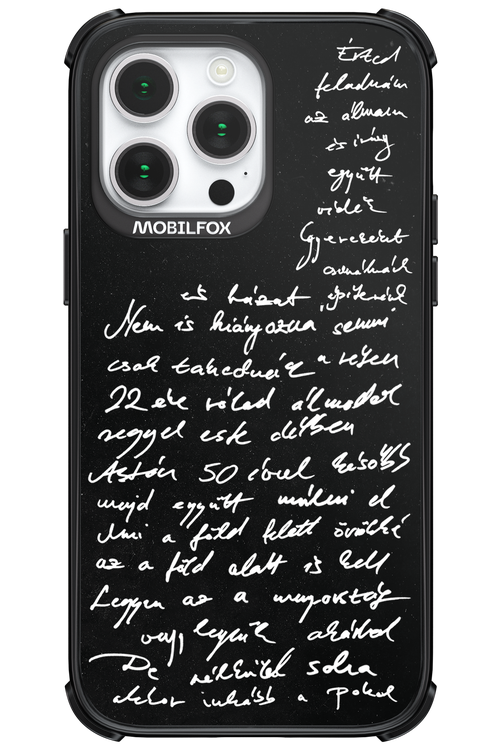 MOBILFOX
Érted
feladnám
az álmaim
és irány
együtt
vidék
Gyerekeket
csinálnánk
és házat építenénk
Nem is hiányozna semmi
csak takarodnánk a
22 éve rólad álmodok
reggel este délben
Aztán 50 évvel később
majd együtt múlni el
Ami a föld felett örökké
az a föld alatt is kell
Legyen az a mennyország
vagy legyünk akárhol
De nélküled soha
akkor inkább a pokol